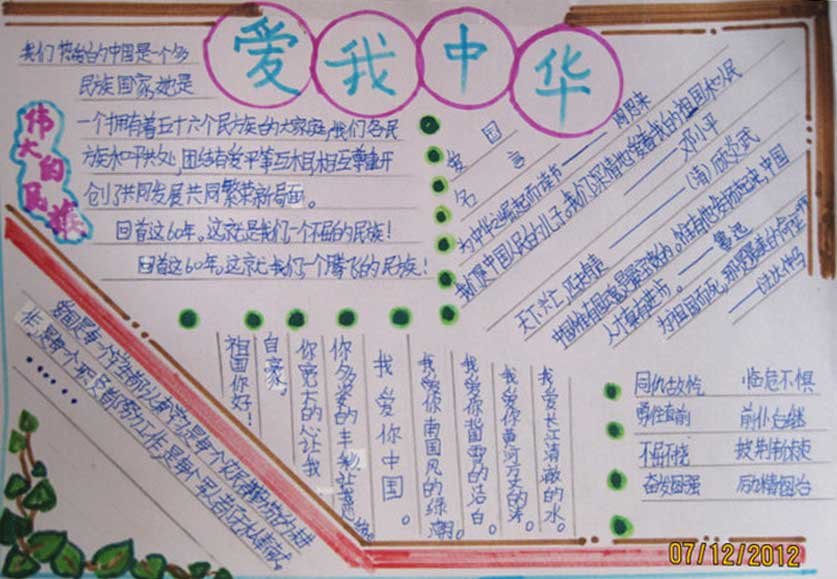 爱我中华
伟大的民族
我们热的中国是一个多
民族国家,她是
一个拥有着五十六个民族的大家庭,我们各民
族和平共处,团结友爱平等互相尊重开
创了共同发展共同繁荣新局面。
回首这60年。这就是我们一个不屈的民族!
回首这60年。这就是我们一个腾飞的民族!
爱国
名言
为中华之崛起而读书——周恩来
我们是中国人民的儿子。我们深情地爱着我的祖国和人民
——邓小平
天下兴亡,匹夫有责——(清)顾炎武
中国
人才有进步。——鲁迅
为祖国而死,那是最美的命运啊
我爱长江清澈的水。
我爱你黄河
我爱你雪的洁白。
我爱你南国风的绿
我爱你中国。
你多姿的丰
你宽大的让我
自豪。
祖国你好!
同仇敌忾 临危不惧
勇往直前 前仆后继
不屈不挠 披荆
奋发图强 励精图治
07/12/2012